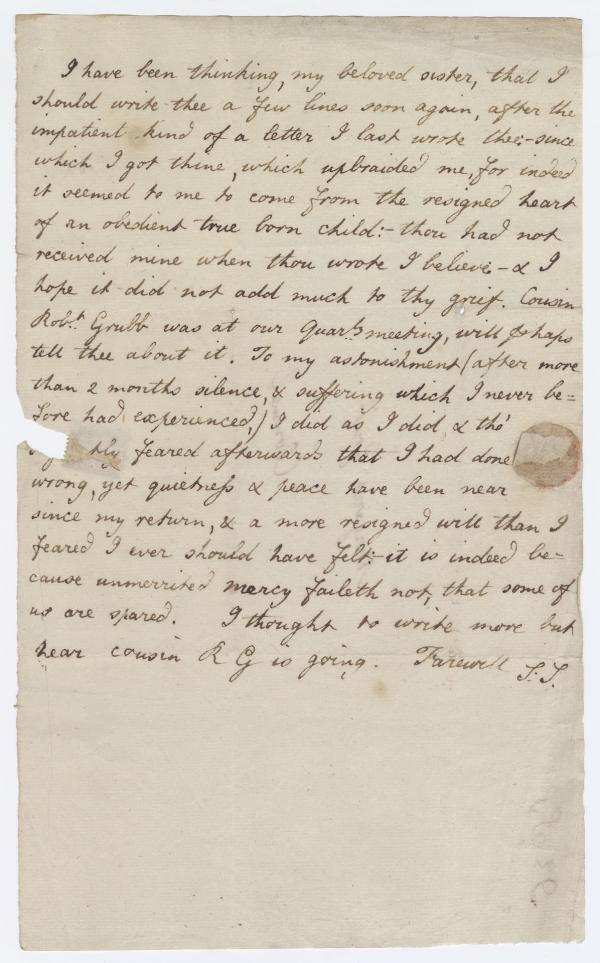 I have been thinking, my beloved sister, that I
should write thee a few lines soon again, after the
impatient kind of a letter I last wrote thee:-since
which I got thine, which upbraided me, for indeed
it seemed to me to come from the resigned heart
of an obedient true born child:- thou had not
received mine when thou wrote I believe - & I
hope it did not add much to thy grief. Cousin
Robt. Grubb was at our Quarly meeting, will phaps
tell thee about it. To my astonishment (after more
than 2 months silence, & suffering which I never be=
fore had experienced,) I did as I did & tho'
feared afterwards that I had done
wrong, yet quietness & peace have been near
since my return, & a more resigned will than I
feared I ever should have felt:- it is indeed be=
cause unmerrited mercy faileth not, that some of
us are spared. I thought to write more but
hear cousin R G is going. Farewell S:S.